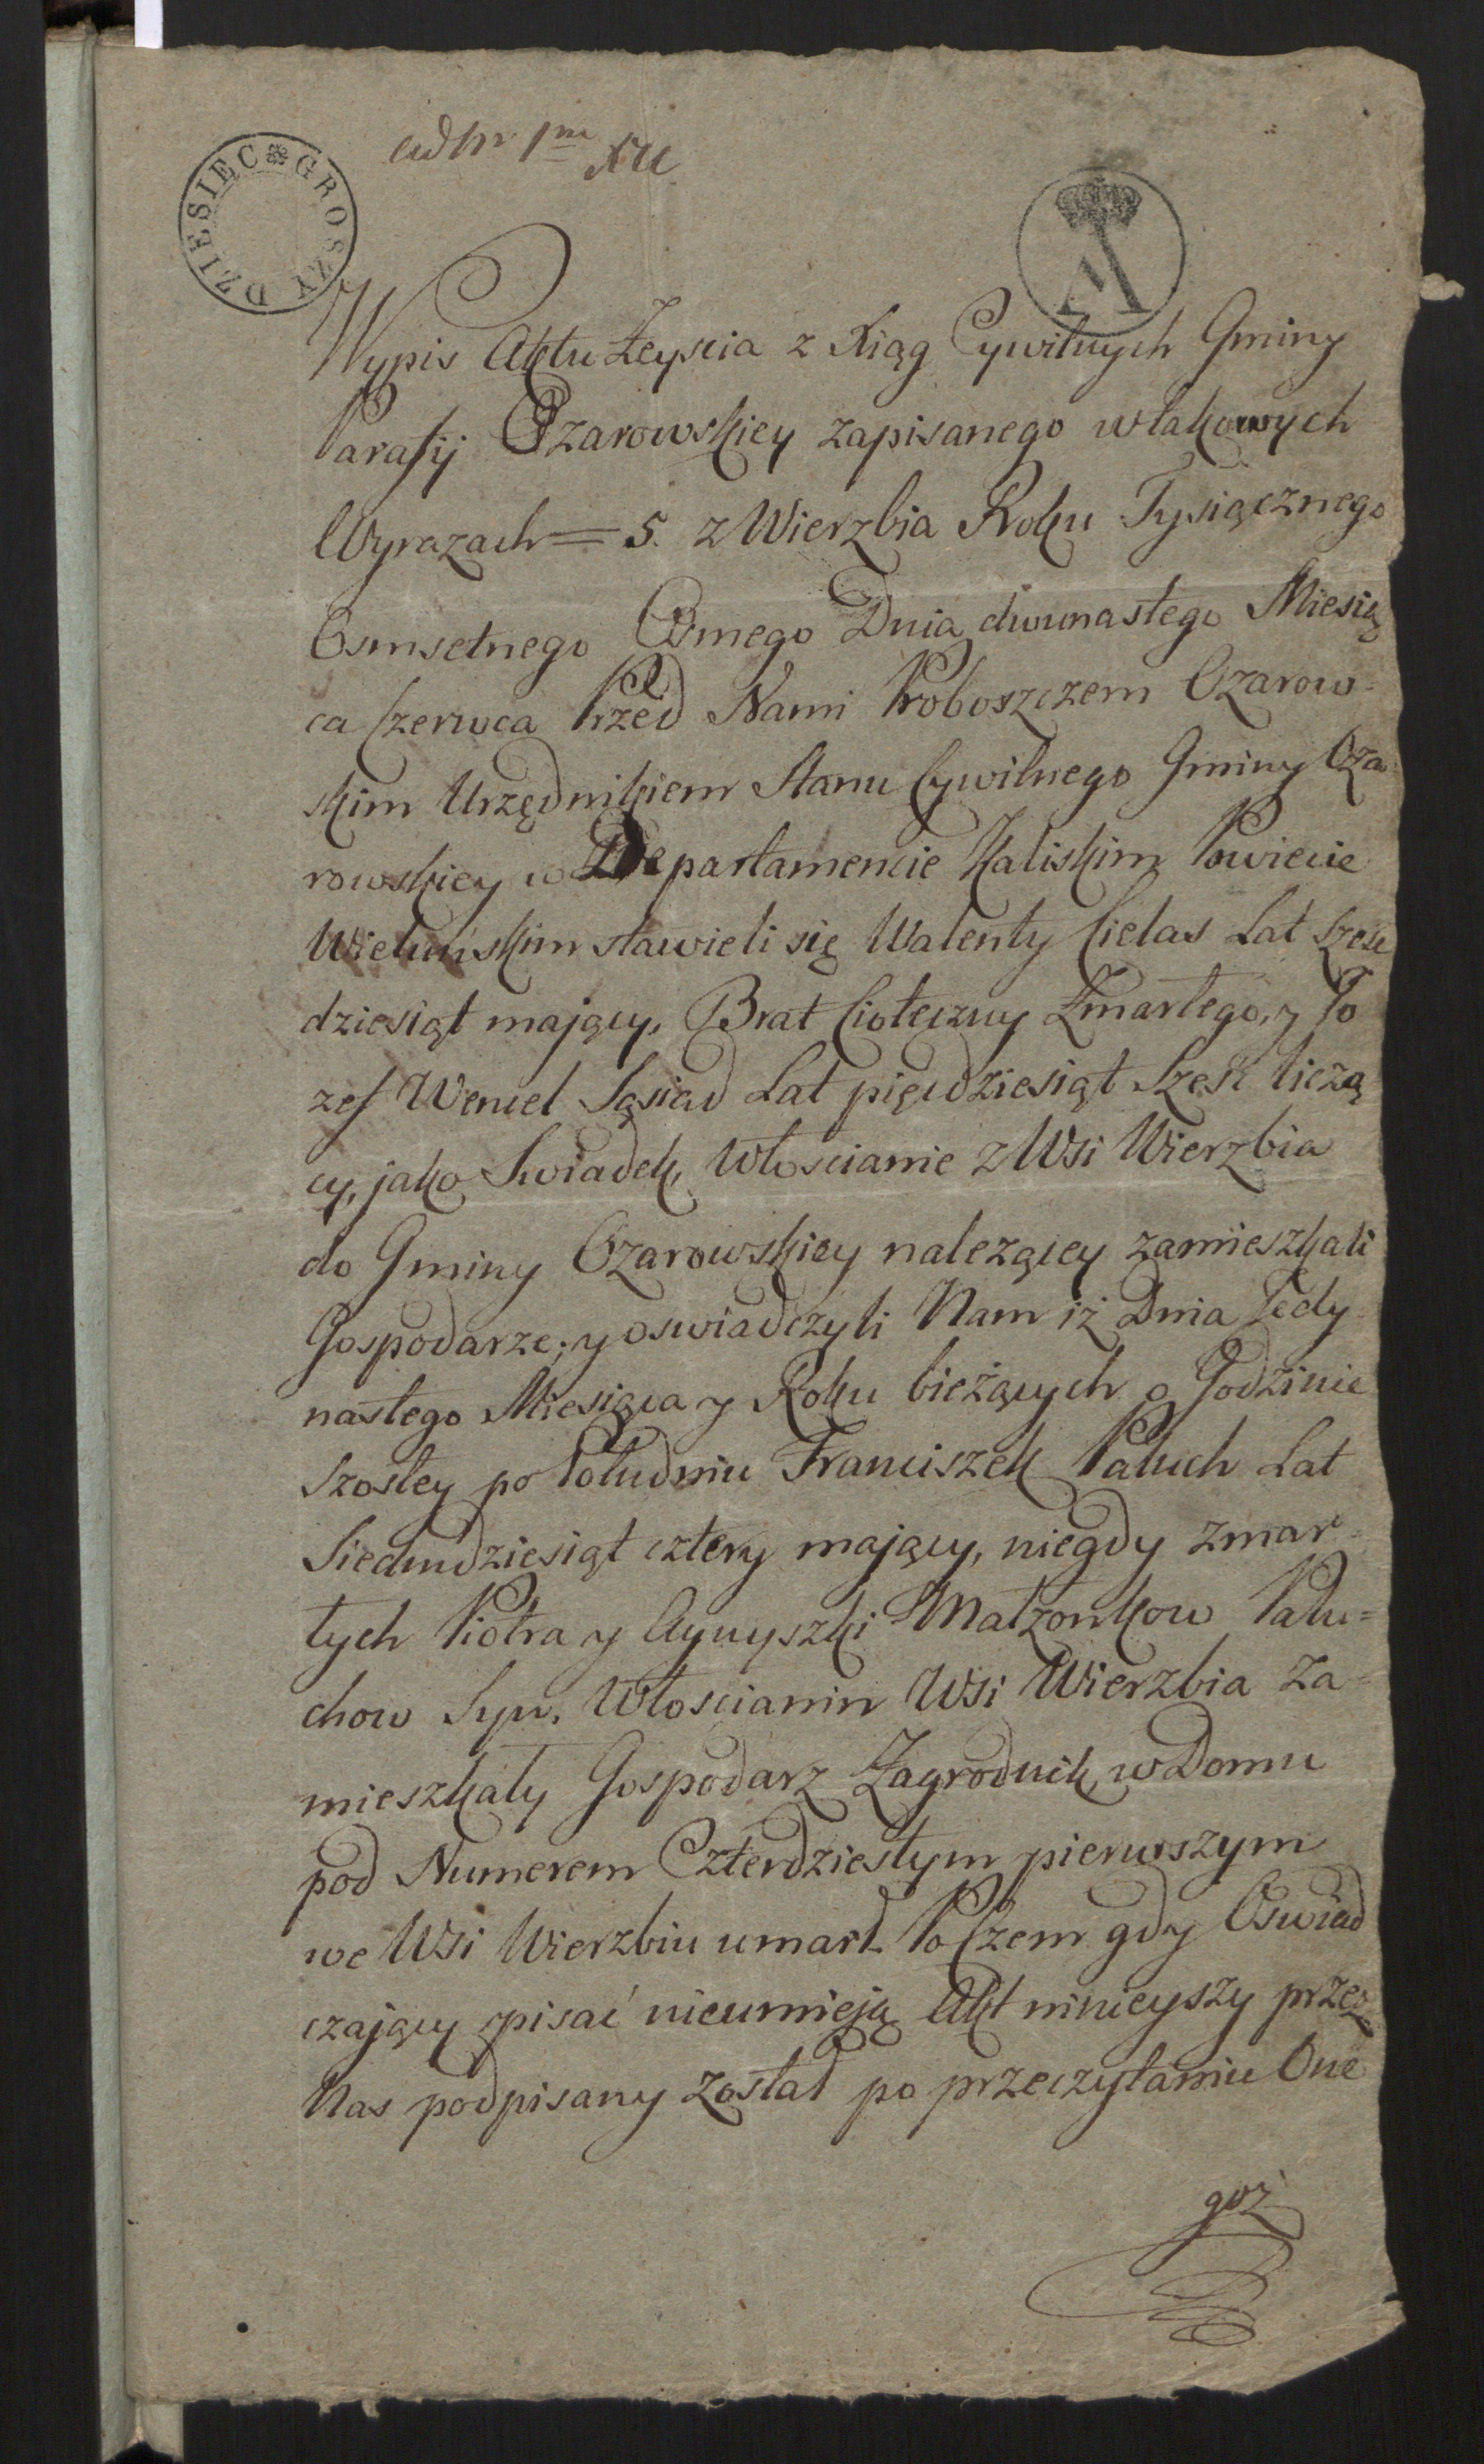 DZIESIĘC GROSZY
ad Nr 1m
Wypis Aktu Zeyscia z Xiąg Cywilnych Gminy
Parafij Ozarowskiey zapisanego w takowych
Wyrazach = 5. z Wierzbia Roku Tysiącznego
Osmsetnego Osmego Dnia dwunastego Miesią
ca Czerwca Przed Nami Proboszczem Ozarow-
skim Urzędnikiem Stanu Cywilnego Gminy Oza-
rowskiey w Departamencie Kaliskim Powiecie
Wieluńskim stawieli się Walenty Cielas Lat Szesc
dziesiąt mający, Brat Cioteczny Zmarłego, y Jo
zef Wencel Sąsiad Lat pięcdziesiąt Szesc liczą
cy, jako Swiadek, Włoscianie z Wsi Wierzbia
do Gminy Ozarowskiey nalezącey zamieszkali
Gospodarze; y oswiadczyli Nam iż Dnia Jedy
nastego Miesiąca y Roku bieżących o Godzinie
Szostey po Południu Franciszek Paluch Lat
Siedmdziesiąt cztery mający, niegdy zmar-
łych Piotra y Agnyszki Małzonkow Palu=
chow Syn, Włoscianin Wsi Wierzbia Za-
mieszkały Gospodarz Zagrodnik w Domu
pod Numerem Czterdziestym pierwszym
we Wsi Wierzbiu umarł. Po Czem gdy Oswiad
czający pisać nieumieją Akt ninieyszy przez
Nas podpisany został po przeczytaniu One
goż